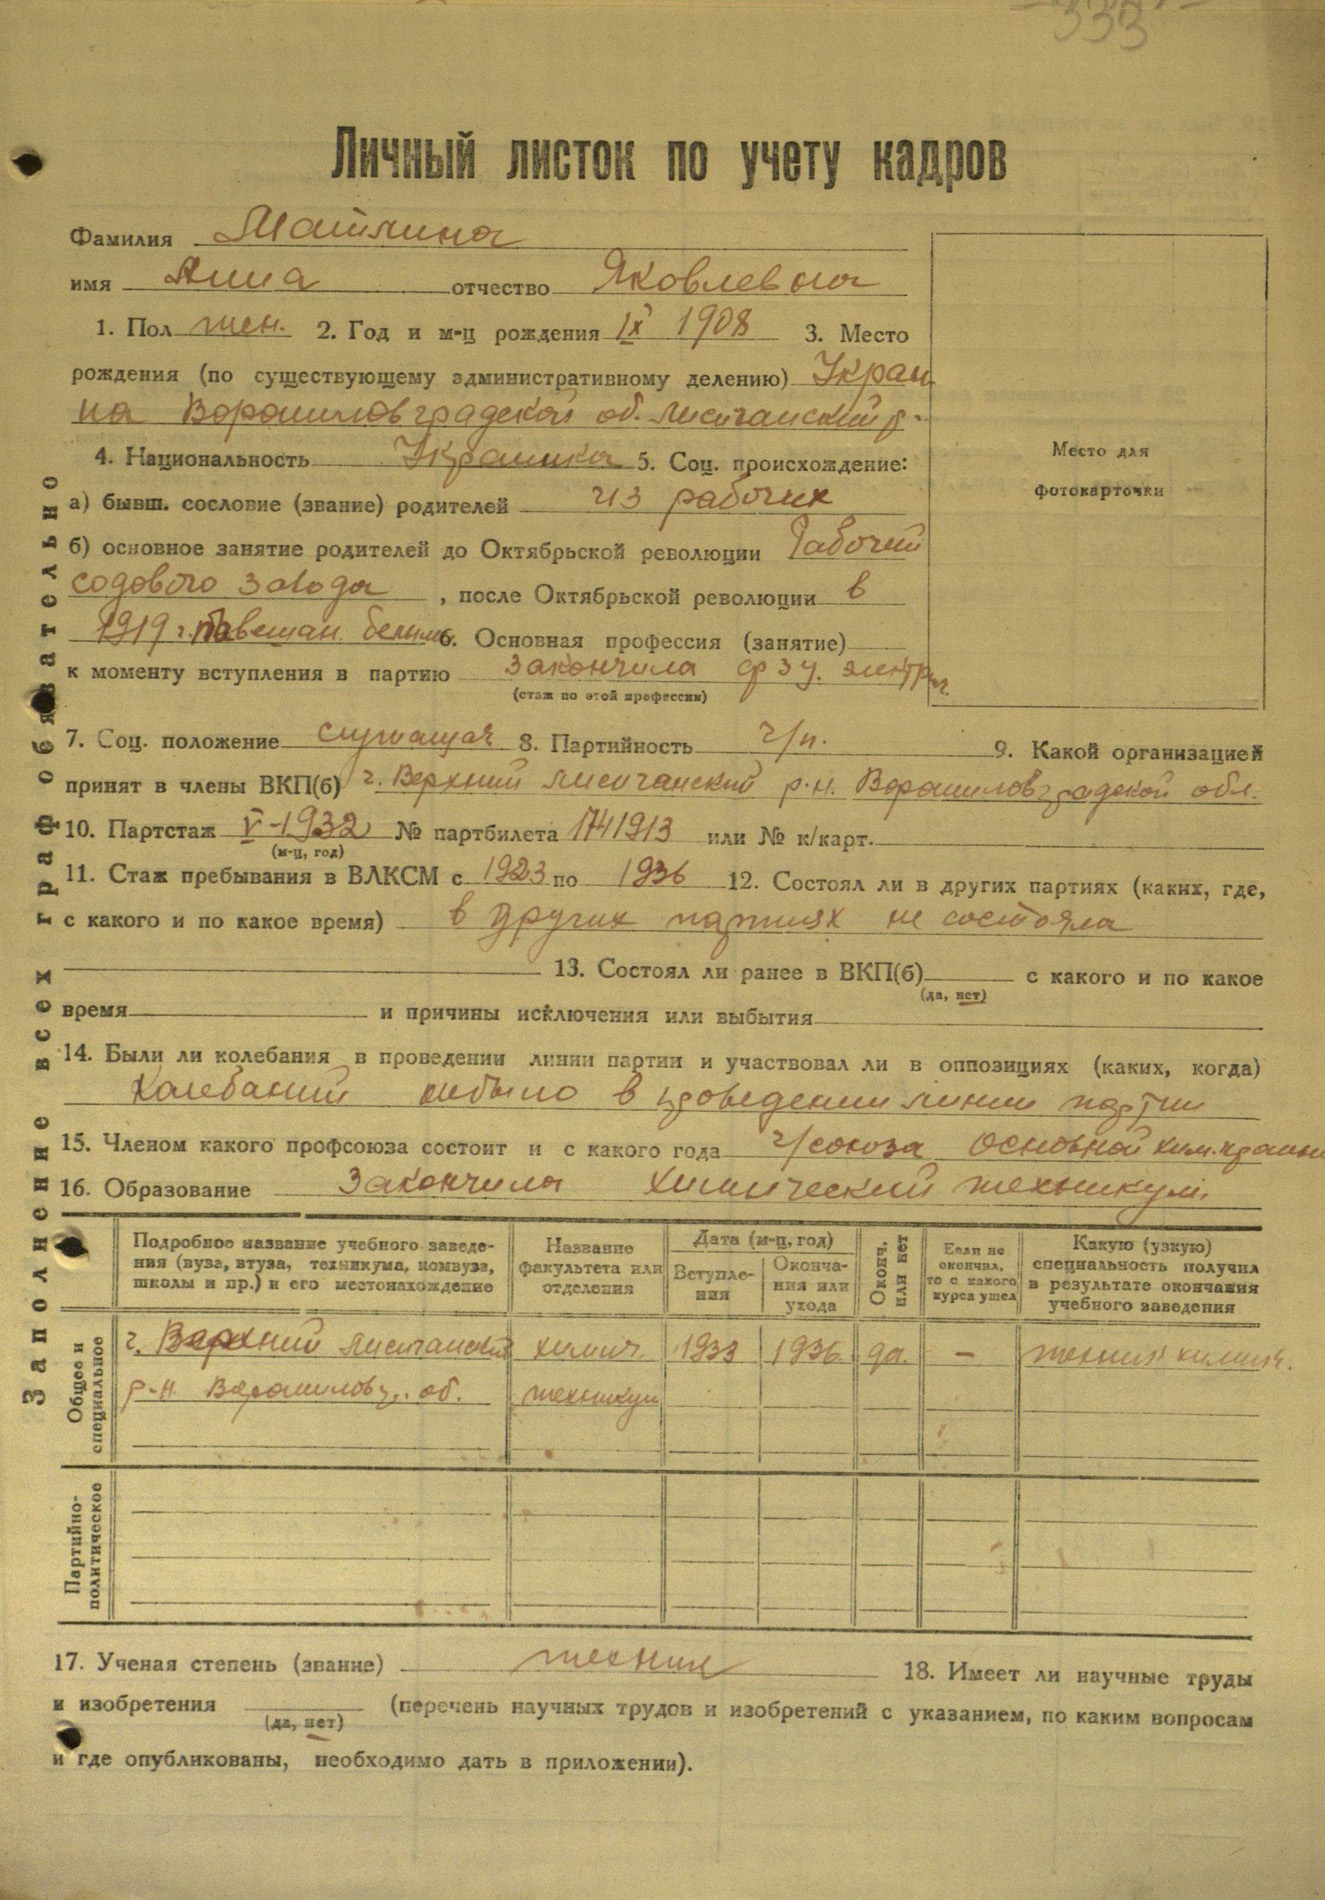 333
Личный листок по учету кадров
Фамилия Матлина
имя Анна отчество Яковлевна
1. Пол жен. 2. Год и м-ц рождения IX 1908 3. Место
рождения (по существующему административному делению) Украи
на Ворошиловградской об. Лисичанский р-
4. Национальность Украинка 5. Соц. происхождение:
а) бывш. сословие (звание) родителей из рабочих
б) основное занятие родителей до Октябрьской революции Рабочий
содового завода, после Октябрьской революции в
1919 г. повешан белыми 6. Основная профессия (занятие)
к моменту вступления в партию закончила фзу. электр
(стаж по этой профессии)
Место для
фотокарточки
7. Соц. положение служащая 8. Партийность ч/п. 9. Какой организацией
принят в члены ВКП(б) г. Верхний Лисичанский р-н. Ворошиловградской обл.
10. Партстаж V-1932 № партбилета 1741913 или № к/карт.
(м-ц, год)
11. Стаж пребывания в ВЛКСМ с 1923 по 1936 12. Состоял ли в других партиях (каких, где,
с какого и по какое время) в других партиях не состояла
13. Состоял ли ранее в ВКП(б) с какого и по какое
(да, нет)
время и причины исключения или выбытия
14. Были ли колебания в проведении линии партии и участвовал ли в оппозициях (каких, когда)
Колебаний небыло в проведении линии партии
15. Членом какого профсоюза состоит и с какого года ч/союза основной хим.
16. Образование Закончила химический техникум.
Подробное название учебного заведе-
ния (вуза, втуза, техникума, комвуза,
школы и пр.) и его местонахождение
Название
факультета или
отделения
Дата (м-ц, год)
Вступле-
ния
Оконча-
ния или
ухода
Оконч.
или нет
Если не
окончил,
то с какого
курса ушел
Какую (узкую)
специальность получил
в результате окончания
учебного заведения
Общее и
специальное
г. Верхний Лисичанский химич. 1933 1936. да. — техник химик.
р-н. Ворошиловг. об. техникум
Партийно-
политическое
17. Ученая степень (звание) техник 18. Имеет ли научные труды
и изобретения (перечень научных трудов и изобретений с указанием, по каким вопросам
(да, нет)
и где опубликованы, необходимо дать в приложении).
Заполнение всех граф обязательно